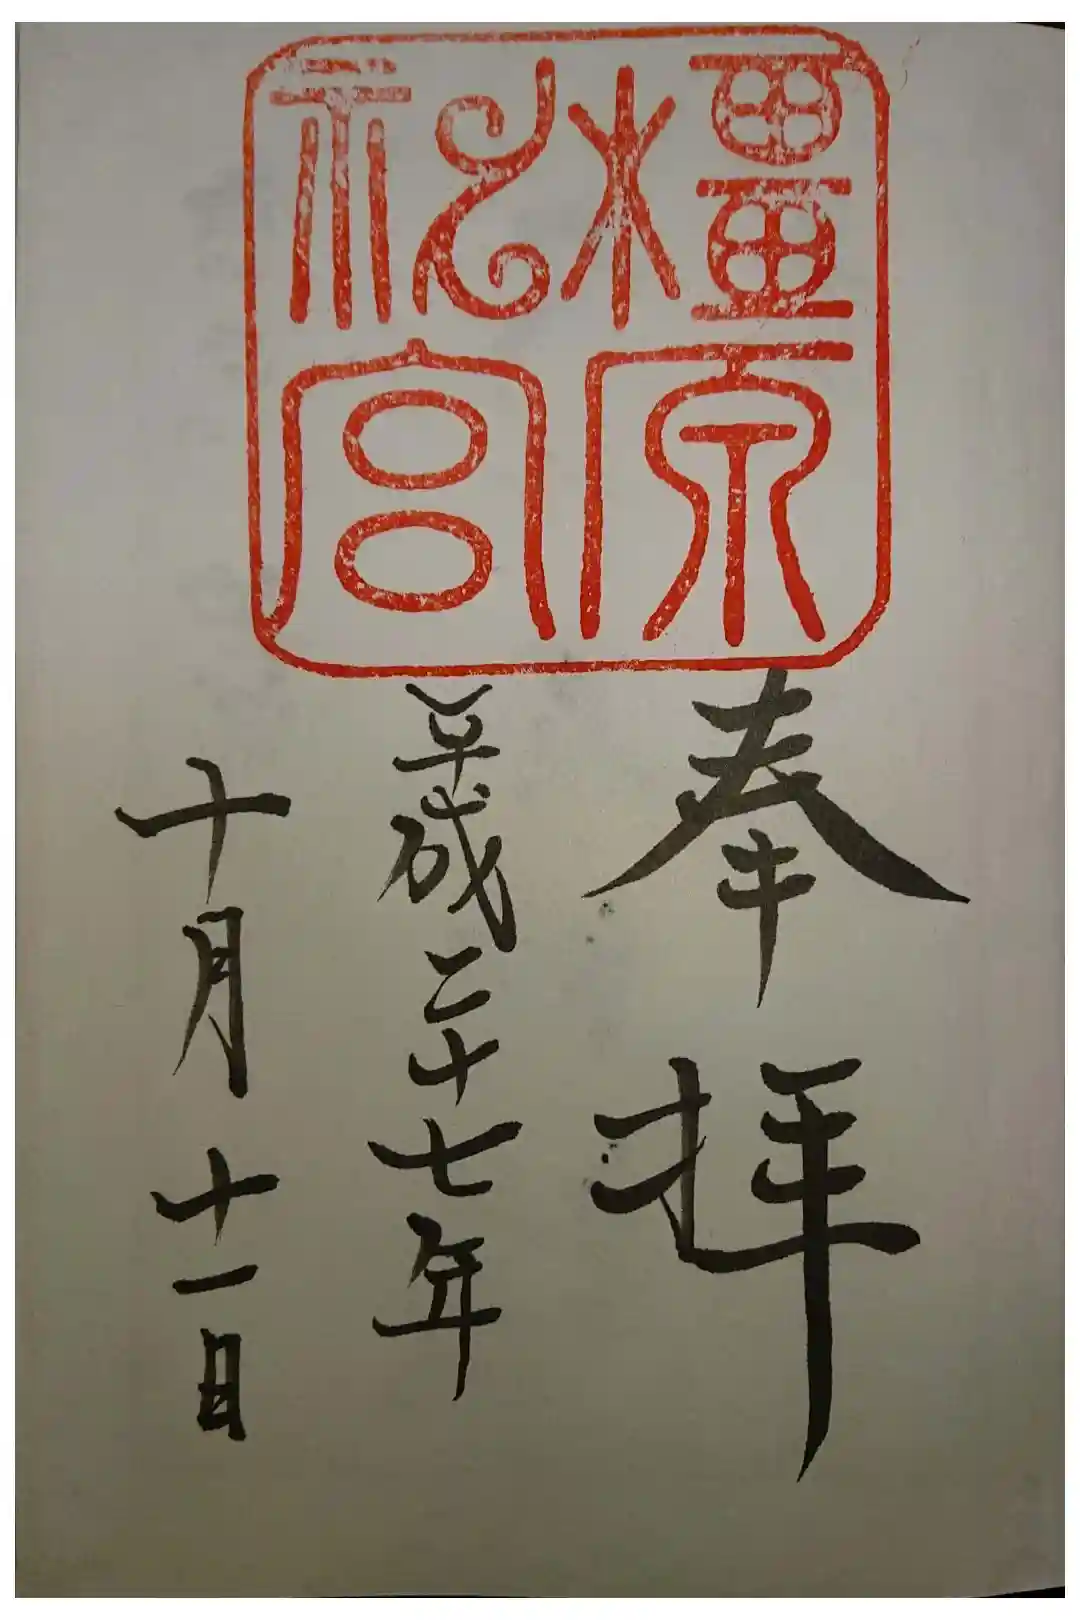 橿原
神宮
奉拝
平成二十七年
十月十一日